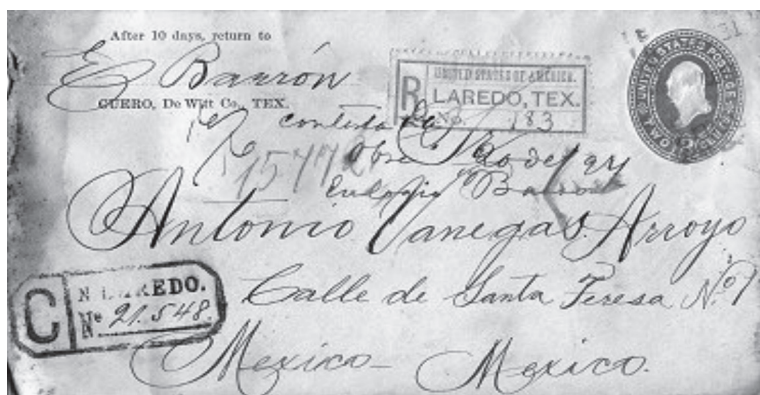 After 10 days, return to
E Barrón
CUERO, De Witt Co., TEX.
UNITED STATES OF AMERICA.
R LAREDO, TEX.
No. 183
UNITED STATES POSTAGE
contestada
de 94
Eulogio Barron
Antonio Vanegas Arroyo
Calle de Santa Teresa No. 1
C N. LAREDO.
No 21.548.
Mexico - Mexico.